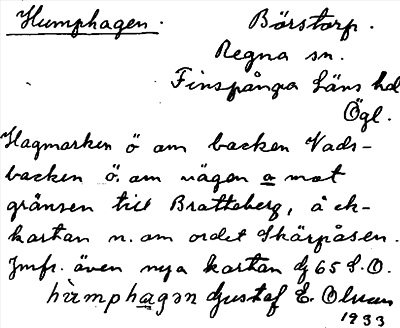 Humphagen.
Börstorp.
Regna sn.
Finspånga läns hd
Ögl.
Hagmarken ö om backen Vads-
backen ö. om vägen o mot
gränsen till Bratteberg, å ek-
kartan n. om ordet Skärpåsen.
Jmfr. även nya kartan dj 65 S.O.
hùmphagən Gustaf E. Olsson
1933